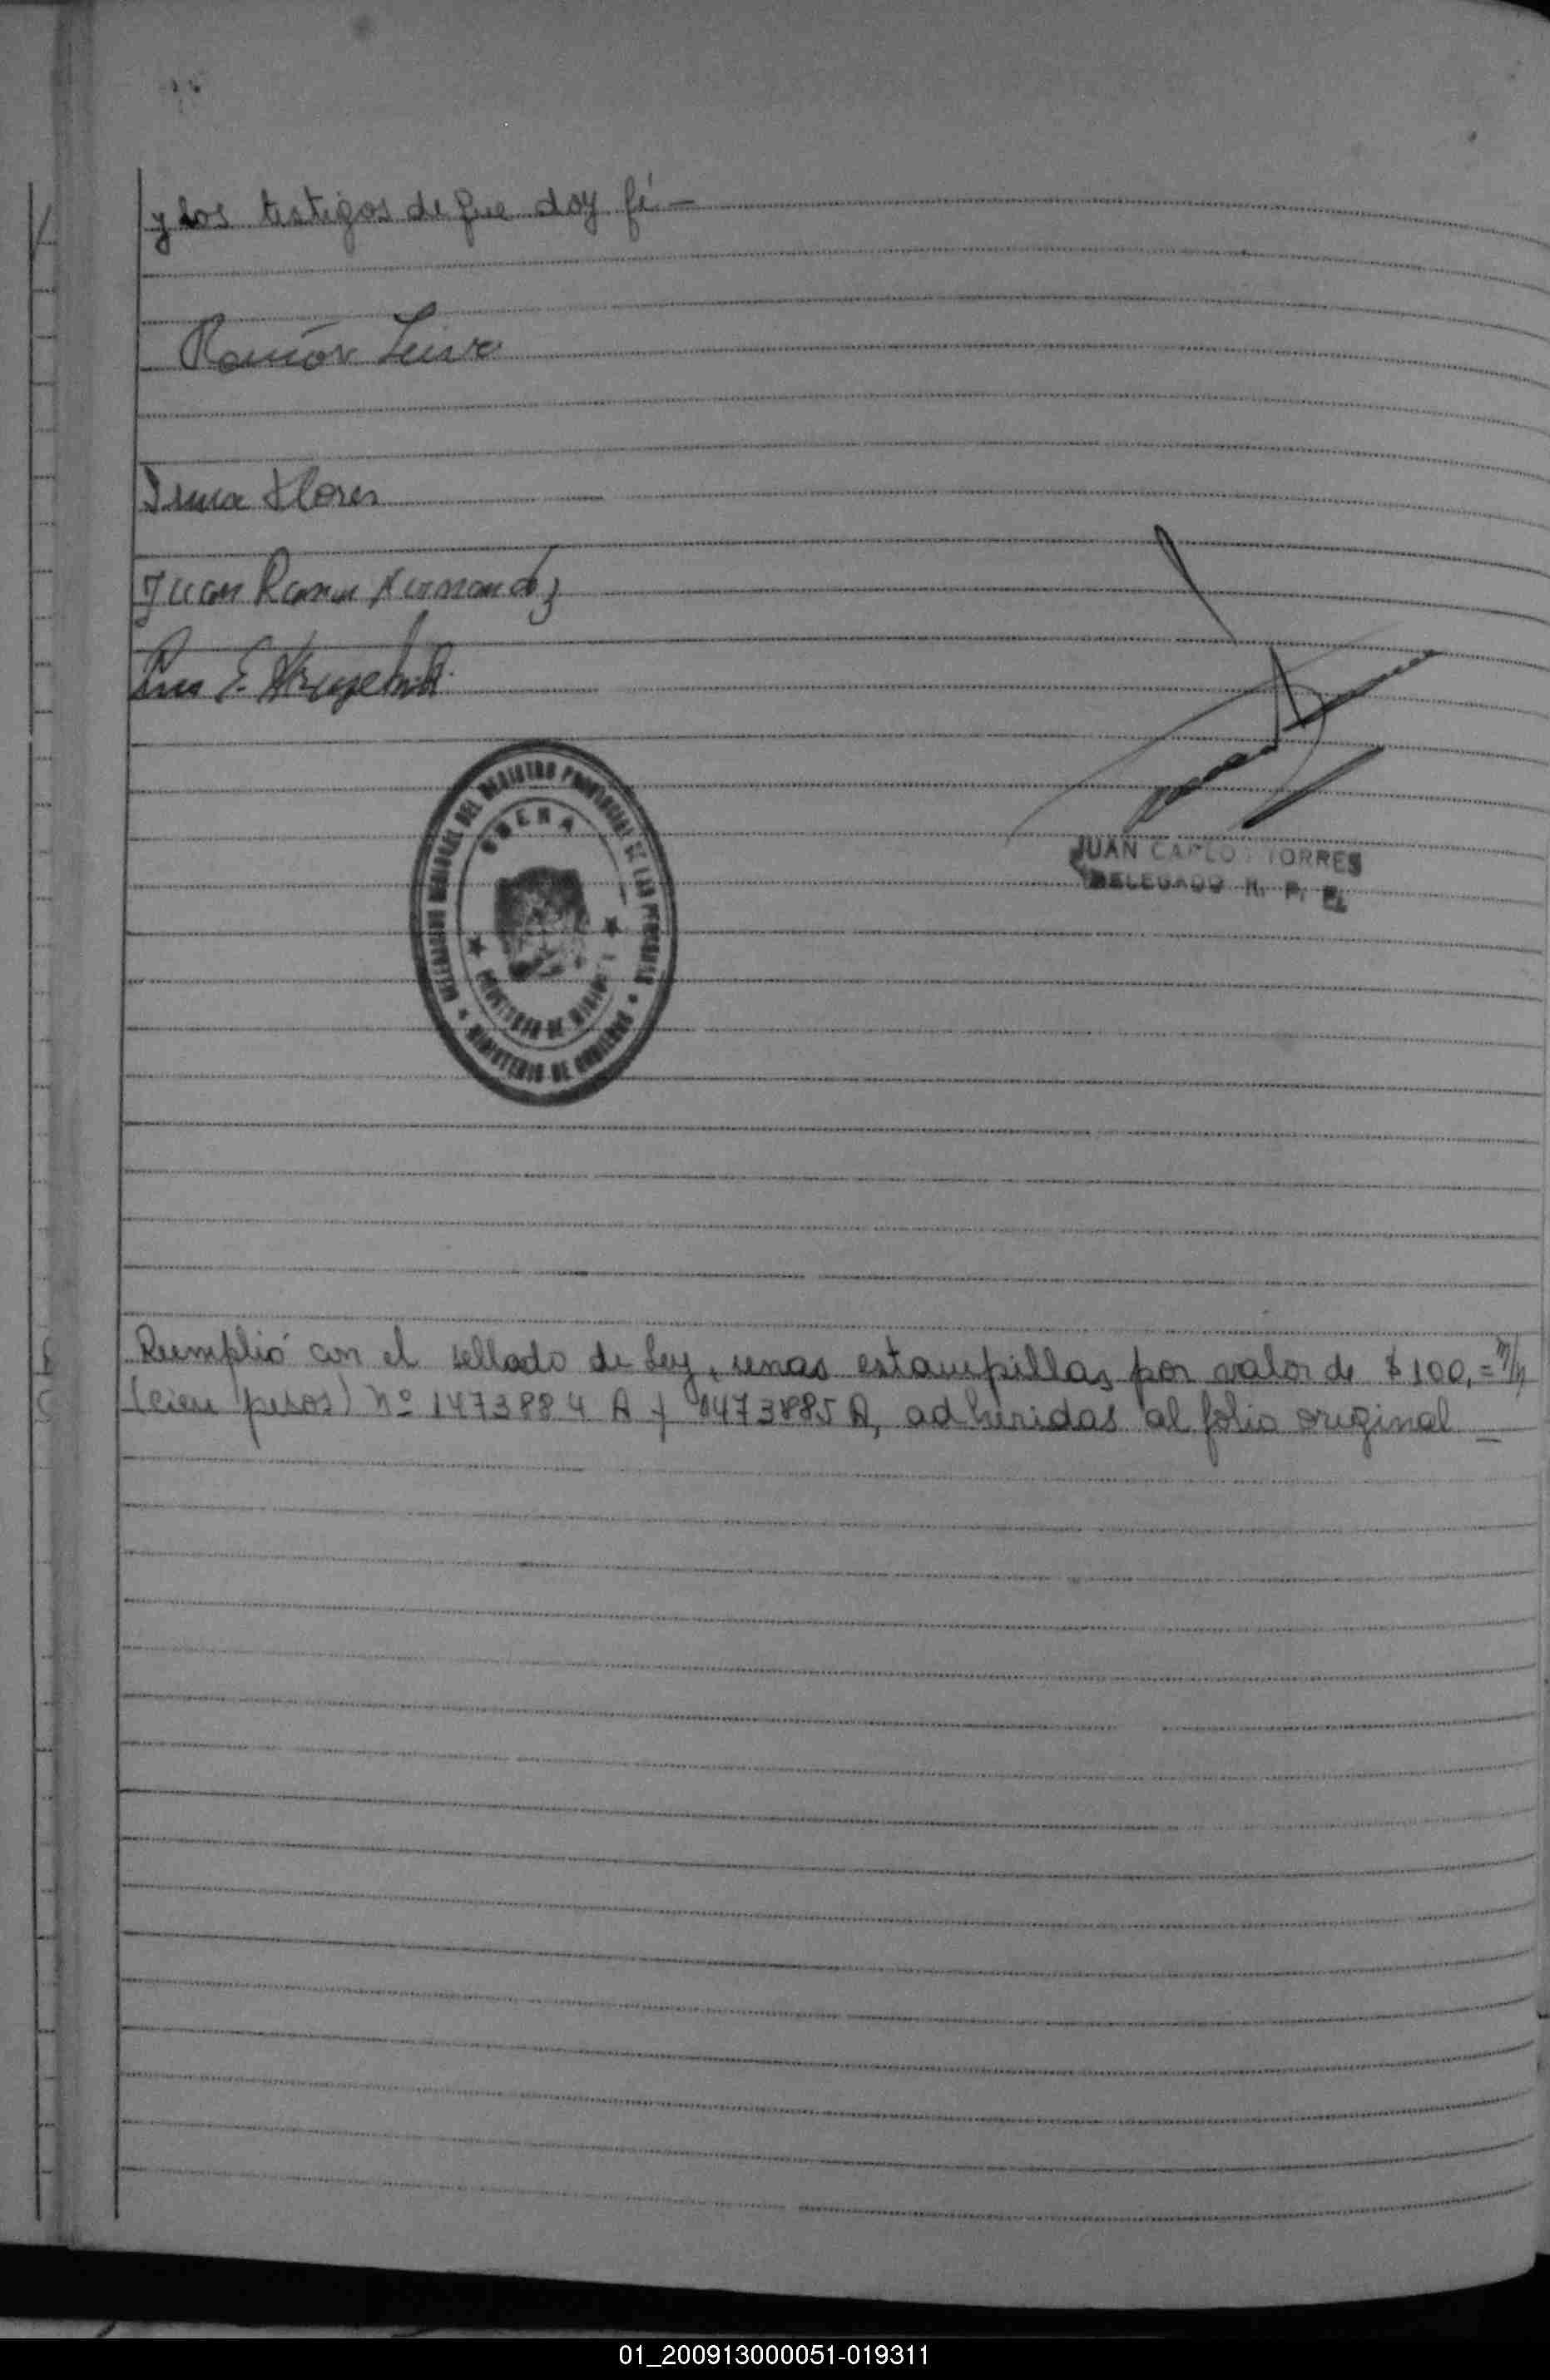 y los testigos de que doy fé —
Ramón Leiva
Irma Flores
Juan Ramon Hernandez
Luis E.
DELEGACION REGIONAL DEL REGISTRO PROVINCIAL DE LAS PERSONAS
OBERA
PROVINCIA DE MISIONES
MINISTERIO DE GOBIERNO
JUAN CARLOS TORRES
DELEGADO R. P. P.
Rumplió con el sellado de Ley, unas estampillas por valor de $ 100,= m/n
(cien pesos) Nº 1473884 A y 1473885 A, adheridas al folio original —
01_200913000051-019311